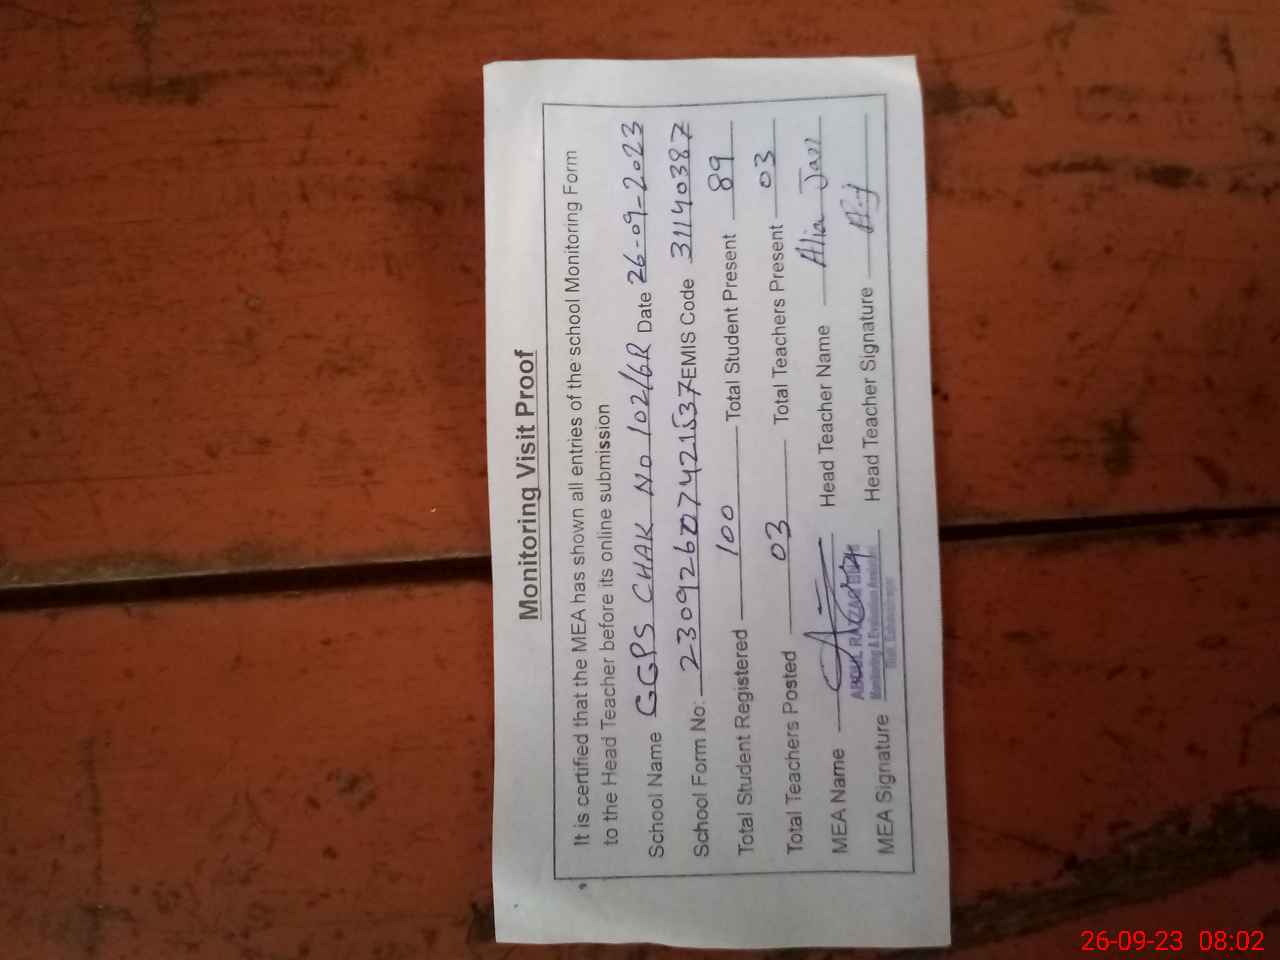 Monitoring Visit Proof
It is certified that the MEA has shown all entries of the school Monitoring Form
to the Head Teacher before its online submission
School Name GGPS CHAK No 102/6R Date 26-09-2023
School Form No: 23092607421537 EMIS Code 31140387
Total Student Registered 100 Total Student Present 89
Total Teachers Posted 03 Total Teachers Present 03
MEA Name Head Teacher Name Alia
ABDUL RAZZAQ
Monitoring & Evaluation Assistant
MEA Signature Head Teacher Signature
26-09-23 08:02